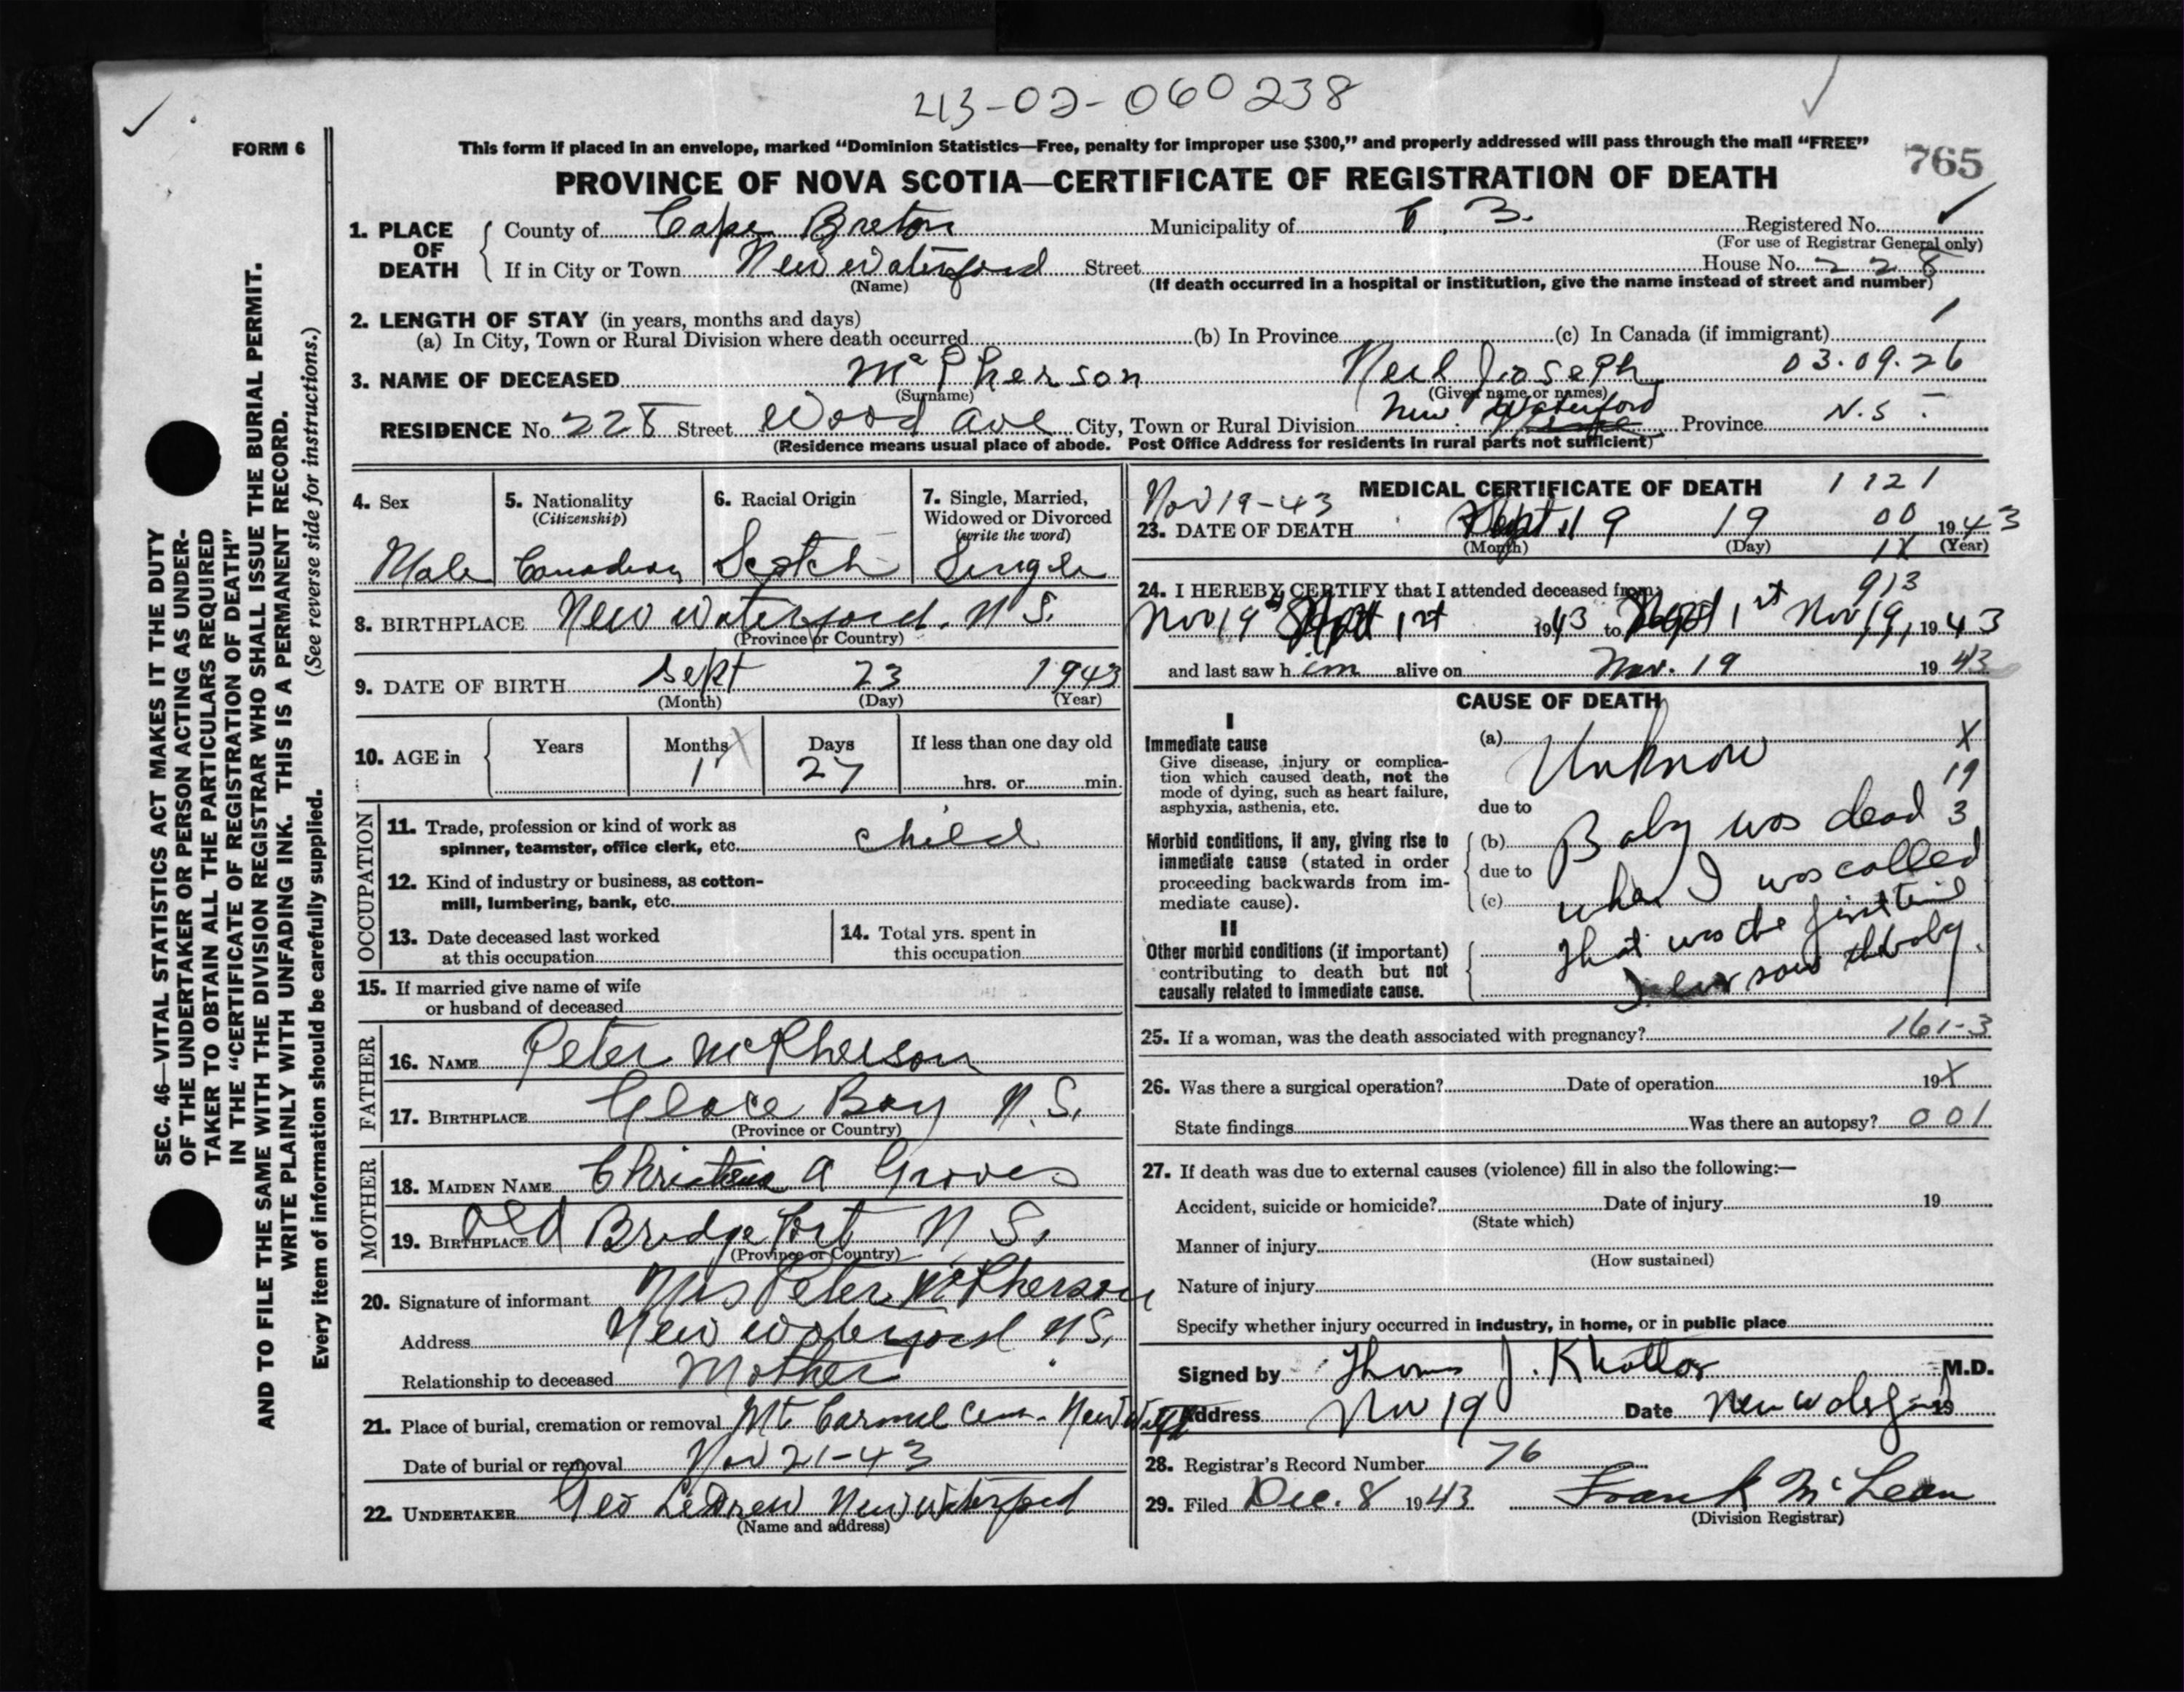 43-02-060238
FORM 6
This form if placed in an envelope, marked "Dominion Statistics—Free, penalty for improper use $300," and properly addressed will pass through the mail "FREE"
765
PROVINCE OF NOVA SCOTIA—CERTIFICATE OF REGISTRATION OF DEATH
1. PLACE OF DEATH County of Cape Breton Municipality of C. B. Registered No.
(For use of Registrar General only)
If in City or Town New Waterford Street House No. 228
(Name) (If death occurred in a hospital or institution, give the name instead of street and number)
2. LENGTH OF STAY (in years, months and days)
(a) In City, Town or Rural Division where death occurred (b) In Province (c) In Canada (if immigrant)
3. NAME OF DECEASED McPherson Neil Joseph 03.09.26
(Surname) (Given name or names)
RESIDENCE No. 228 Street Wood Ave City, Town or Rural Division New Waterford Province N.S.
(Residence means usual place of abode. Post Office Address for residents in rural parts not sufficient)
SEC. 46—VITAL STATISTICS ACT MAKES IT THE DUTY
OF THE UNDERTAKER OR PERSON ACTING AS UNDER-
TAKER TO OBTAIN ALL THE PARTICULARS REQUIRED
IN THE "CERTIFICATE OF REGISTRATION OF DEATH"
AND TO FILE THE SAME WITH THE DIVISION REGISTRAR WHO SHALL ISSUE THE BURIAL PERMIT.
WRITE PLAINLY WITH UNFADING INK. THIS IS A PERMANENT RECORD.
Every item of information should be carefully supplied. (See reverse side for instructions.)
4. Sex
Male
5. Nationality
(Citizenship)
Canadian
6. Racial Origin
Scotch
7. Single, Married,
Widowed or Divorced
(write the word)
Single
8. BIRTHPLACE New Waterford. N S.
(Province or Country)
9. DATE OF BIRTH Sept 23 1943
(Month) (Day) (Year)
10. AGE in Years Months Days If less than one day old
1 27 hrs. or min.
OCCUPATION
11. Trade, profession or kind of work as
spinner, teamster, office clerk, etc. child
12. Kind of industry or business, as cotton-
mill, lumbering, bank, etc.
13. Date deceased last worked
at this occupation
14. Total yrs. spent in
this occupation
15. If married give name of wife
or husband of deceased
FATHER
16. NAME Peter McPherson
17. BIRTHPLACE Glace Bay N. S.
(Province or Country)
MOTHER
18. MAIDEN NAME Christena A Groves
19. BIRTHPLACE Old Bridgeport N S.
(Province or Country)
20. Signature of informant Mrs Peter McPherson
Address New Waterford N S.
Relationship to deceased Mother
21. Place of burial, cremation or removal Mt. Carmel Cem. New Watf
Date of burial or removal Nov 21-43
22. UNDERTAKER Geo LeDrew New Waterford
(Name and address)
MEDICAL CERTIFICATE OF DEATH 1121
Nov 19-43
23. DATE OF DEATH 19 00 1943
(Month) (Day) 1X (Year)
24. I HEREBY CERTIFY that I attended deceased from 913
Nov 19 1943 to Nov 19, 1943
and last saw him alive on Nov. 19 1943
CAUSE OF DEATH
I
Immediate cause
Give disease, injury or complica-
tion which caused death, not the
mode of dying, such as heart failure,
asphyxia, asthenia, etc.
(a) Unknow X
due to 19
Morbid conditions, if any, giving rise to
immediate cause (stated in order
proceeding backwards from im-
mediate cause).
(b) Baby was dead 3
due to
(c) when I was called
II
Other morbid conditions (if important)
contributing to death but not
causally related to immediate cause.
That was the first time
I ever saw the baby.
25. If a woman, was the death associated with pregnancy? 161-3
26. Was there a surgical operation? Date of operation 19X
State findings Was there an autopsy? 001
27. If death was due to external causes (violence) fill in also the following:—
Accident, suicide or homicide? Date of injury 19
(State which)
Manner of injury
(How sustained)
Nature of injury
Specify whether injury occurred in industry, in home, or in public place
Signed by Thomas J. M.D.
Address Nov 19 Date 19
28. Registrar's Record Number 76
29. Filed Dec. 8 1943 Frank McLean
(Division Registrar)